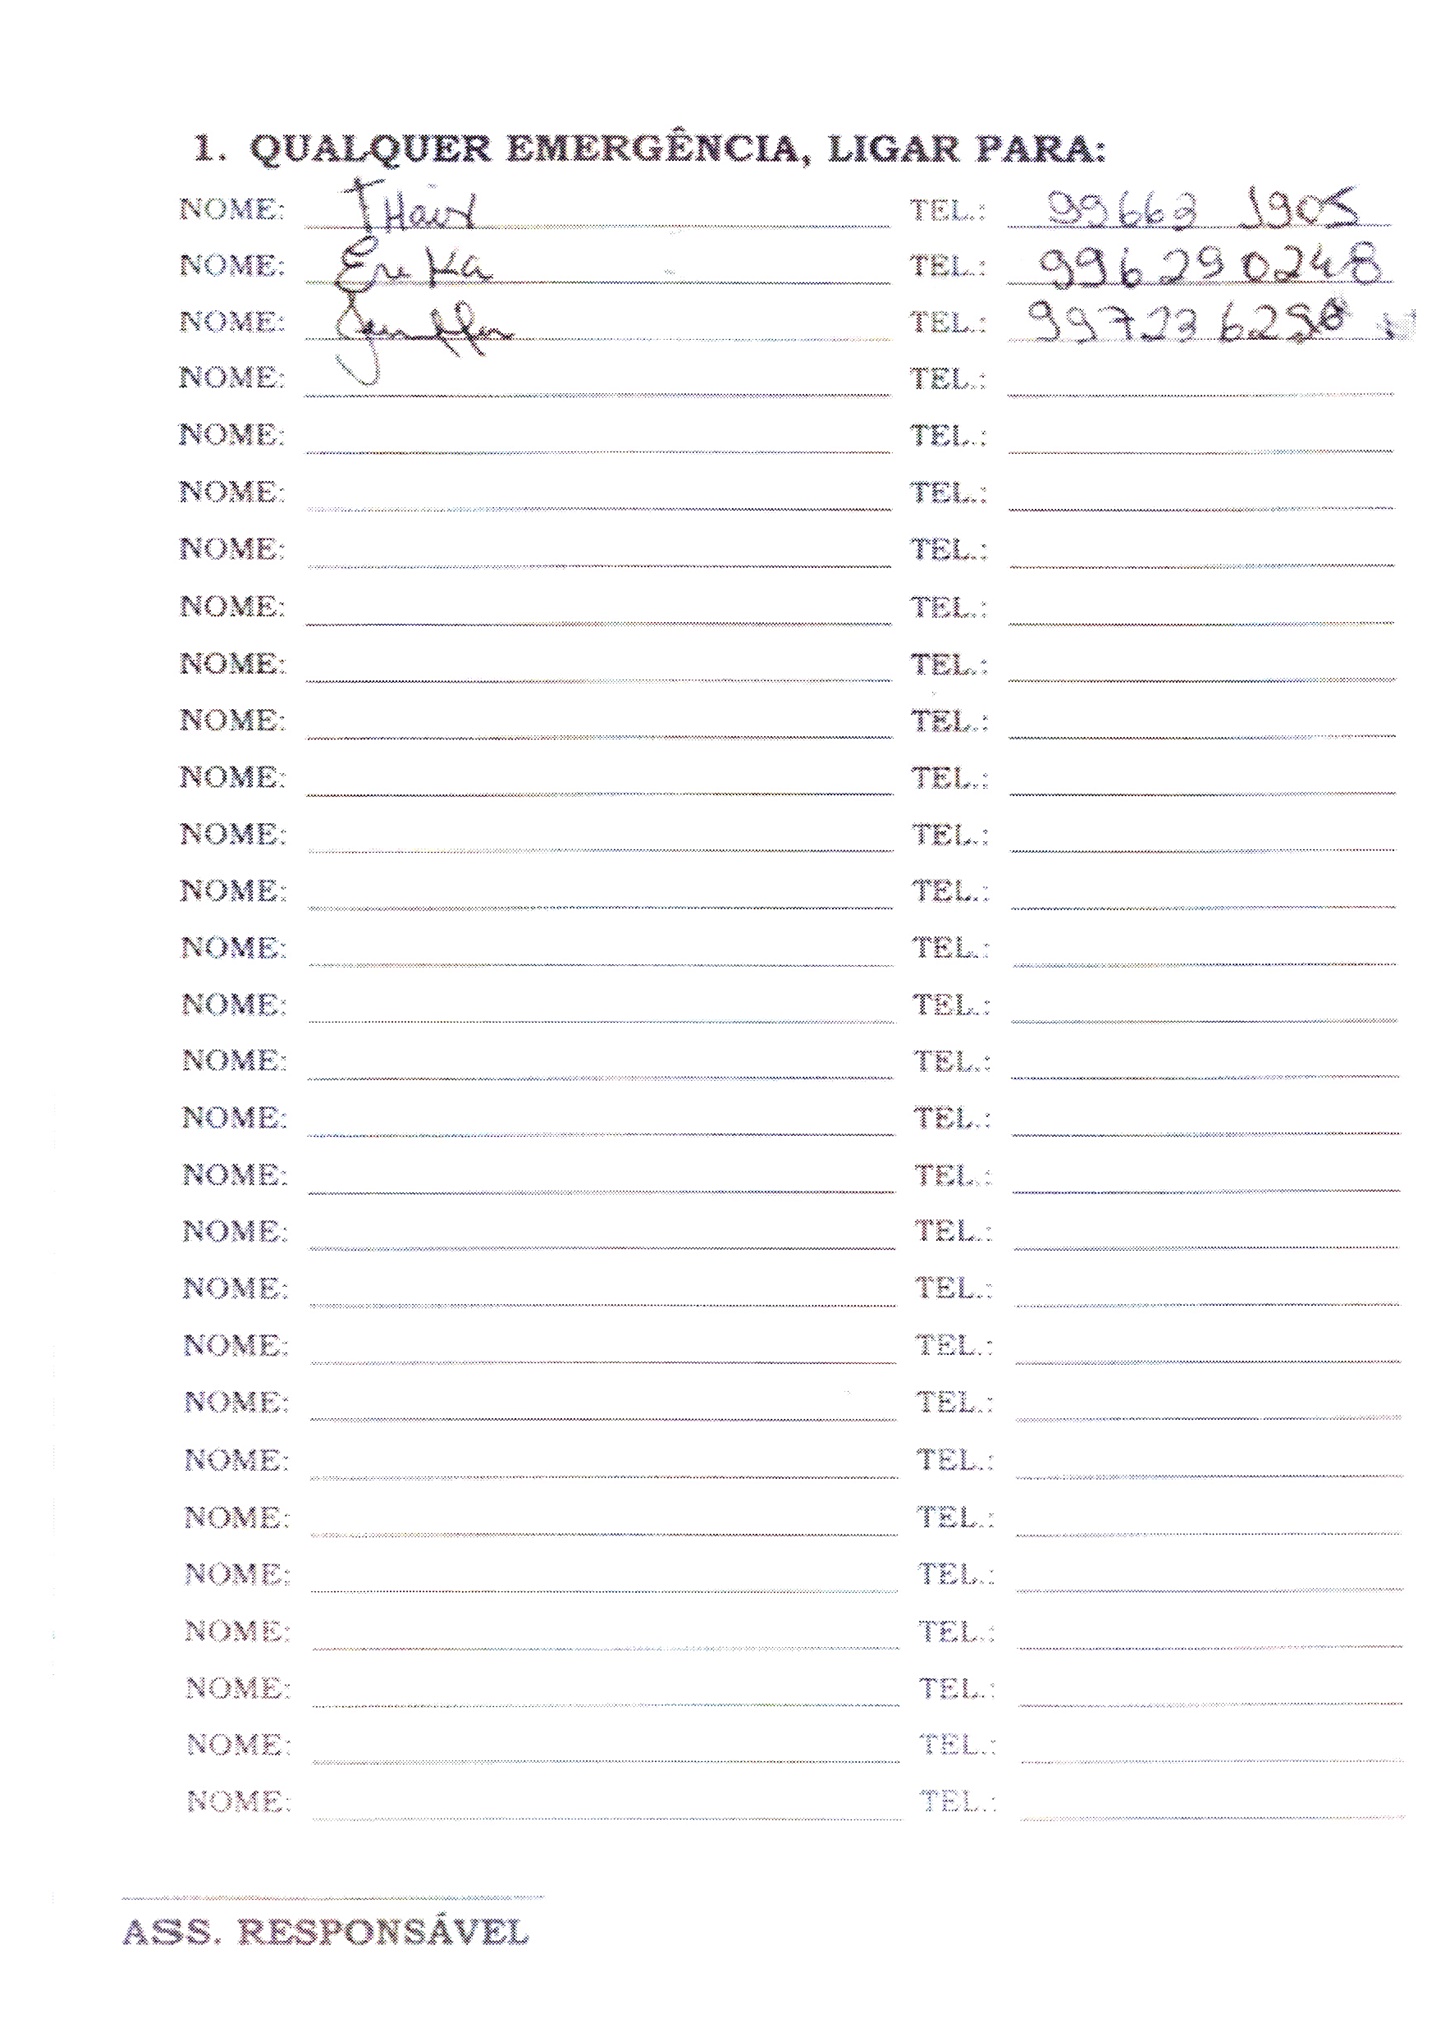 1. QUALQUER EMERGÊNCIA, LIGAR PARA:
NOME: TEL.: 99663 1905
NOME: Erika TEL.: 996290248
NOME: TEL.: 99723
NOME: TEL.:
NOME: TEL.:
NOME: TEL.:
NOME: TEL.:
NOME: TEL.:
NOME: TEL.:
NOME: TEL.:
NOME: TEL.:
NOME: TEL.:
NOME: TEL.:
NOME: TEL.:
NOME: TEL.:
NOME: TEL.:
NOME: TEL.:
NOME: TEL.:
NOME: TEL.:
NOME: TEL.:
NOME: TEL.:
NOME: TEL.:
NOME: TEL.:
NOME: TEL.:
NOME: TEL.:
NOME: TEL.:
NOME: TEL.:
NOME: TEL.:
NOME: TEL.:
ASS. RESPONSÁVEL